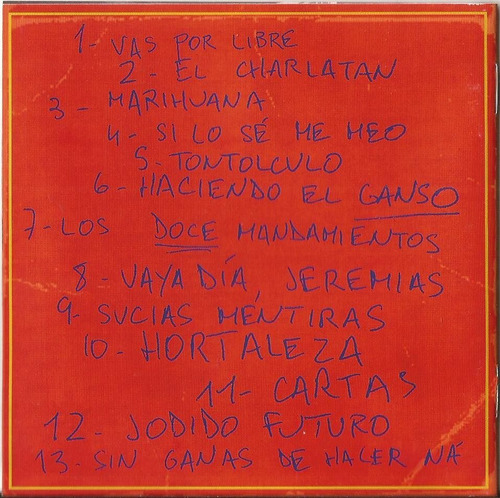 1- VAS POR LIBRE
2- EL CHARLATAN
3- MARIHUANA
4- SI LO SÉ ME MEO
5- TONTOLCULO
6- HACIENDO EL GANSO
7- LOS DOCE MANDAMIENTOS
8- VAYA DÍA, JEREMIAS
9- SUCIAS MENTIRAS
10- HORTALEZA
11- CARTAS
12- JODIDO FUTURO
13- SIN GANAS DE HACER NÁ